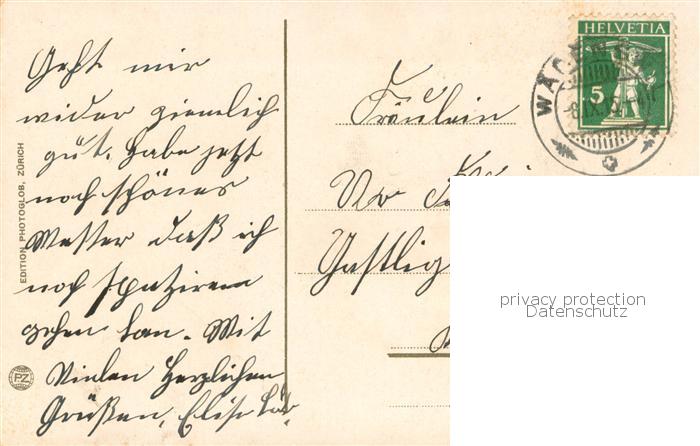 Geht mir
wider ziemlich
gut. habe jetzt
noch schönes
Wetter daß ich
noch spatziren
gehen kan. Mit
Vielen Herzlichen
Grüßen, Elise
EDITION PHOTOGLOB, ZÜRICH
PZ
HELVETIA
5
WÄDENS
Fräulein
privacy protection
Datenschutz